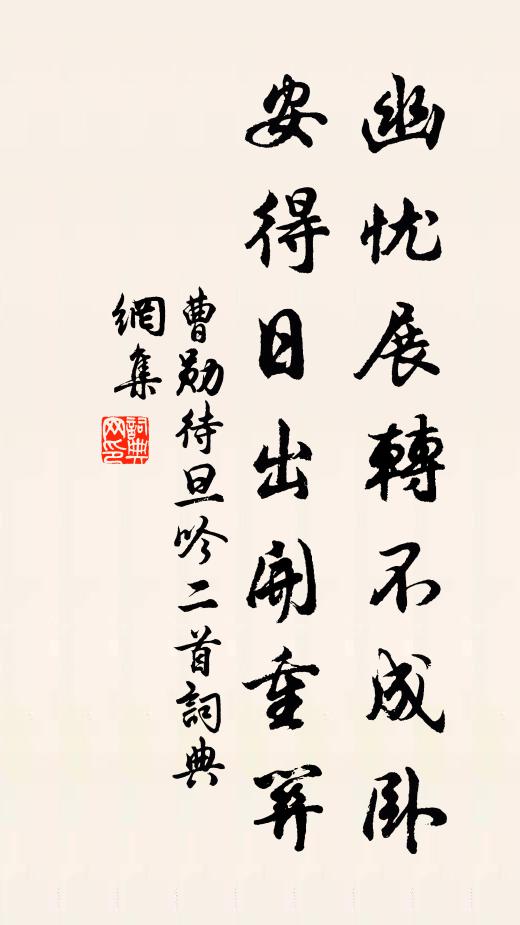 幽忧展轉不成卧
安得日出開重
曹勛待旦吟二首詞典
網集
詞典
网印